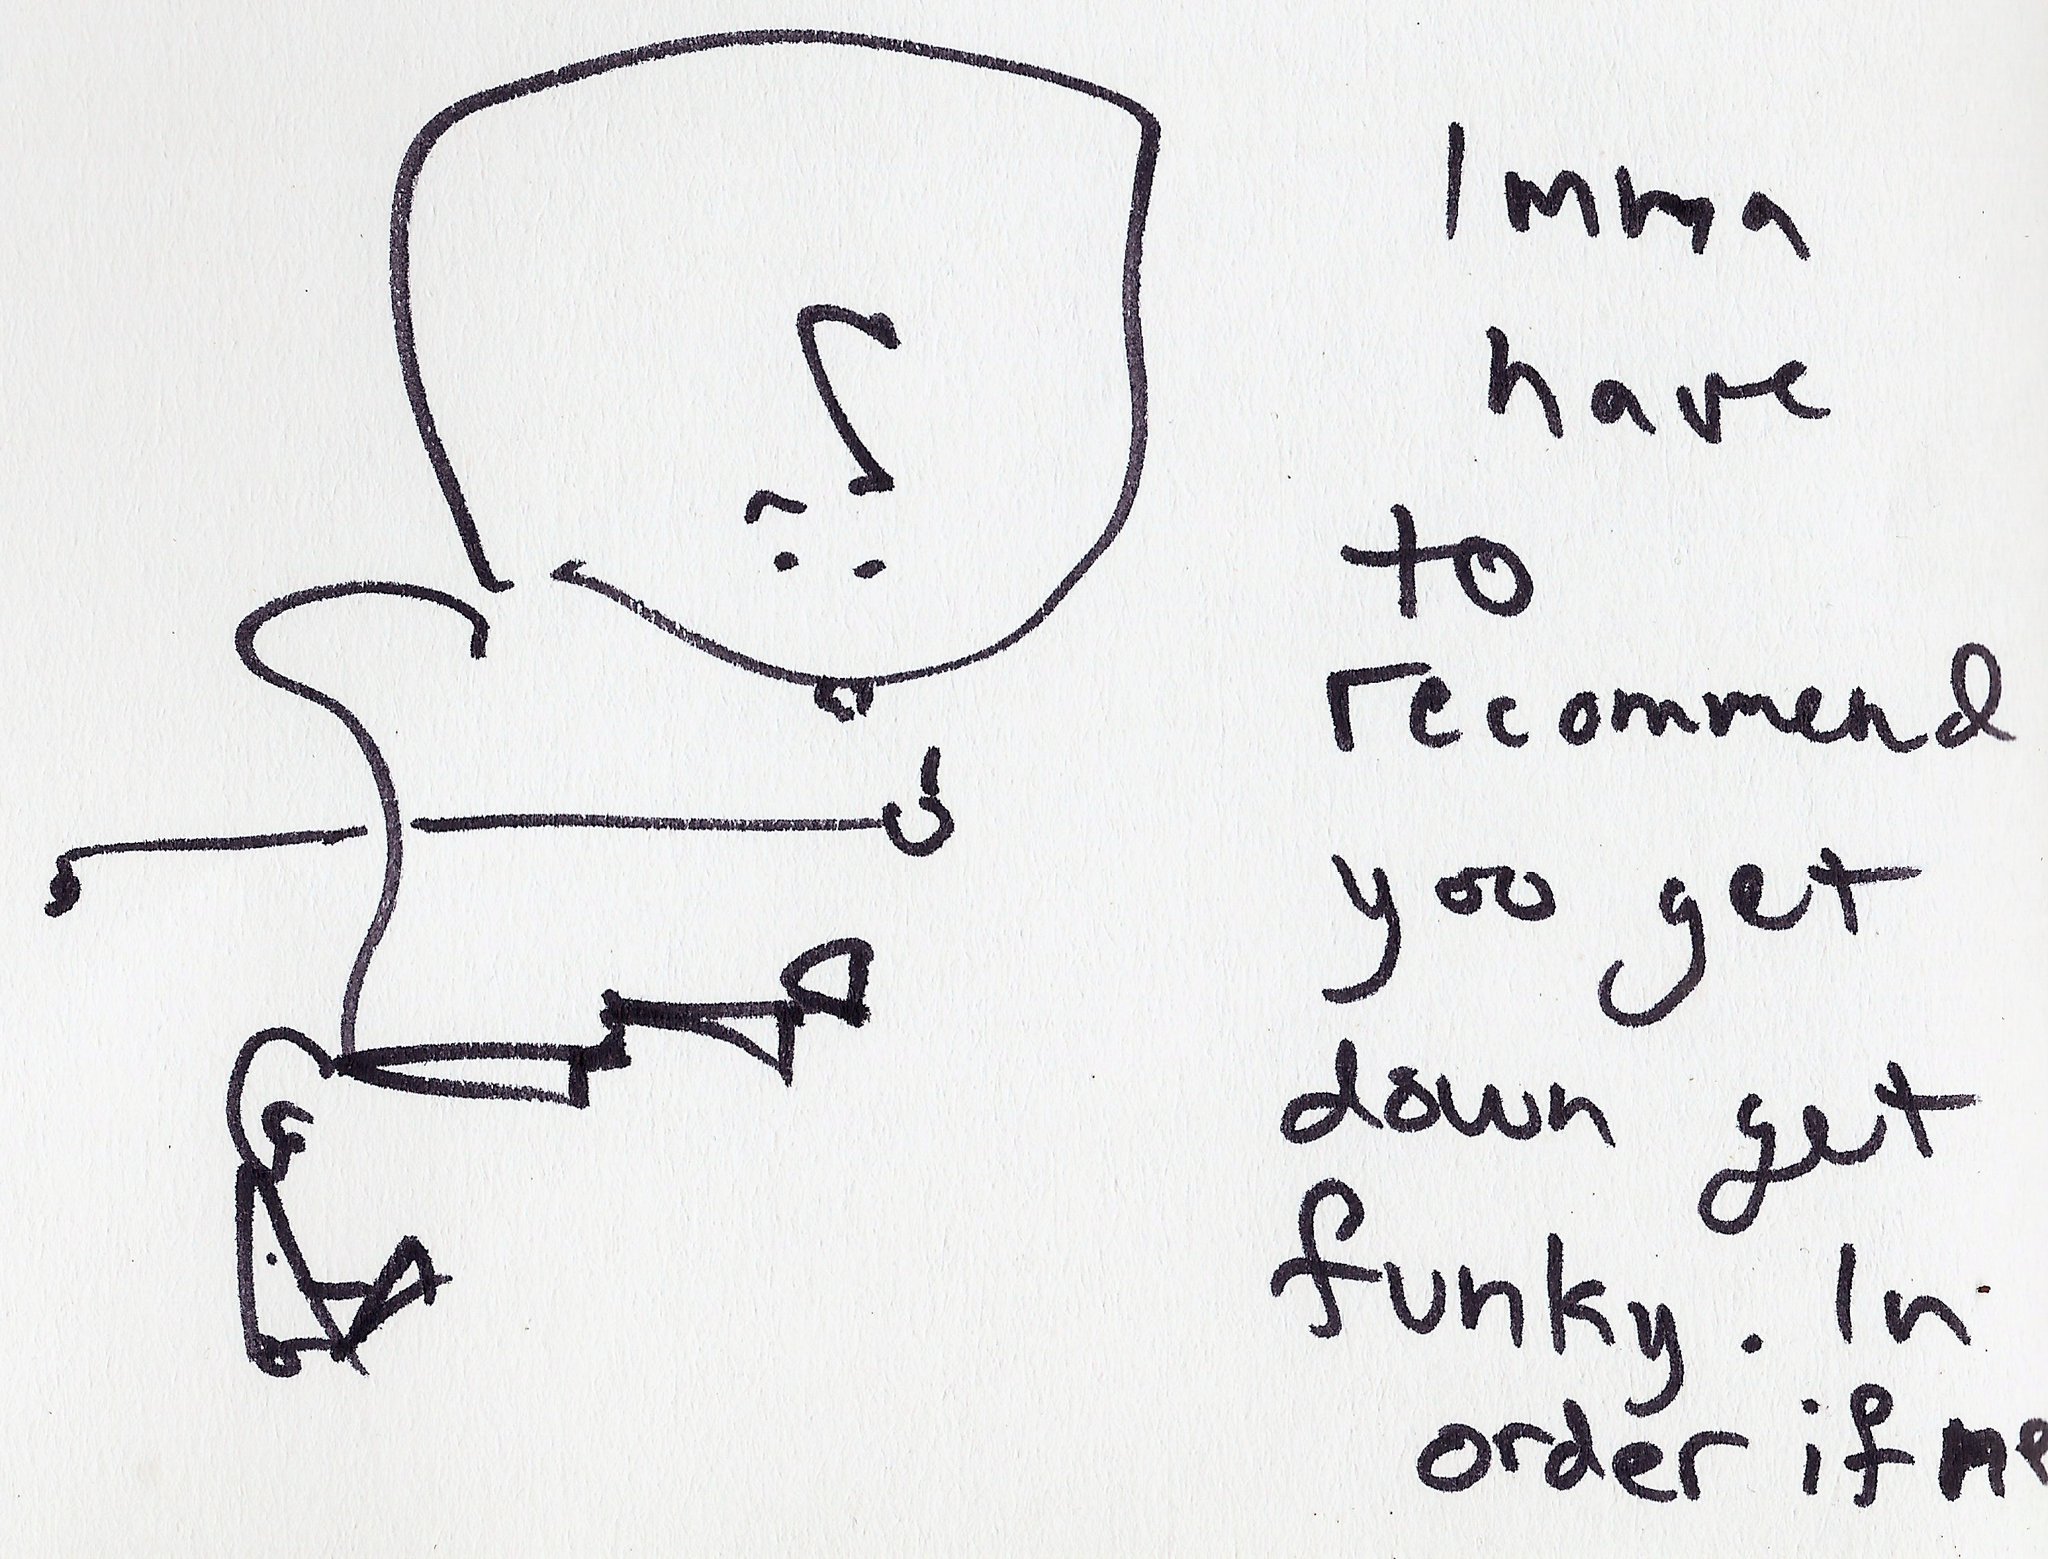 Imma
have
to
recommend
you get
down get
funky. In
order if me